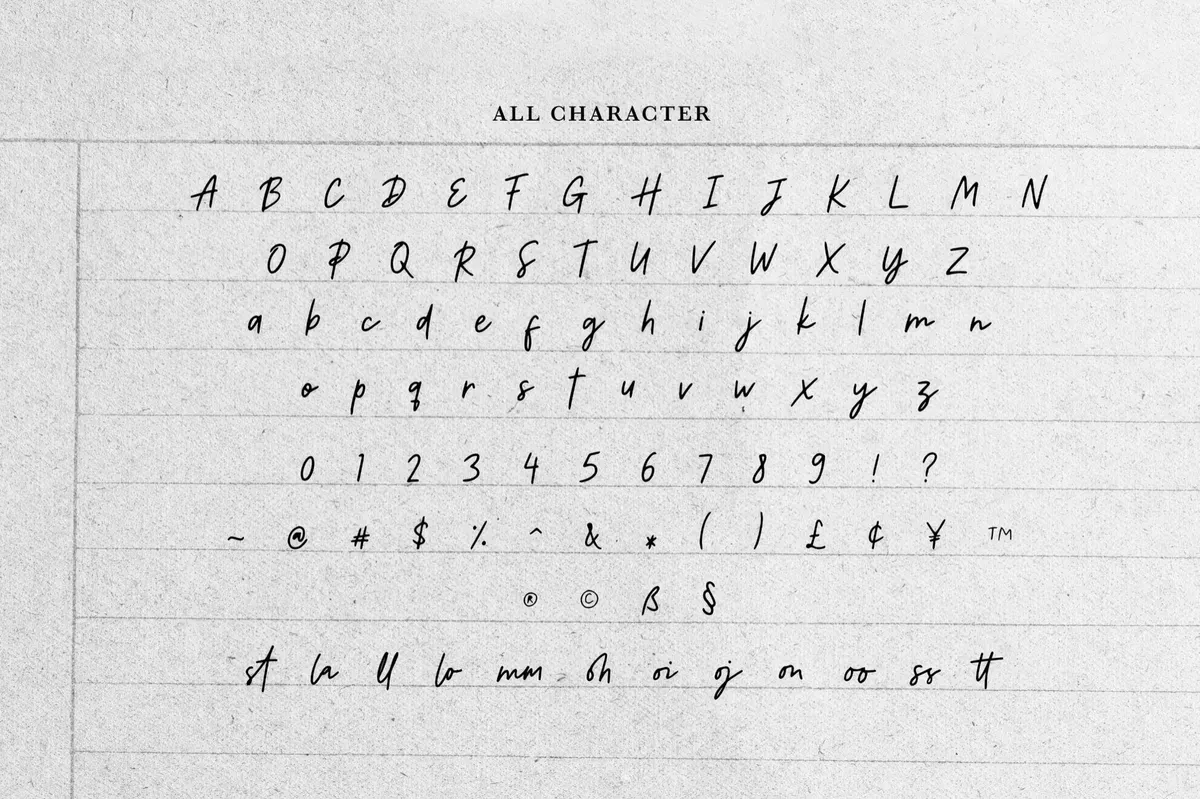 ALL CHARACTER
A B C D E F G H I J K L M N
O P Q R S T U V W X Y Z
a b c d e f g h i j k l m n
o p q r s t u v w x y z
0 1 2 3 4 5 6 7 8 9 ! ?
~ @ # $ % ^ & * ( ) £ ¢ ¥ ™
® © ß §
st la ll lo mm oh oi oj on oo ss tt